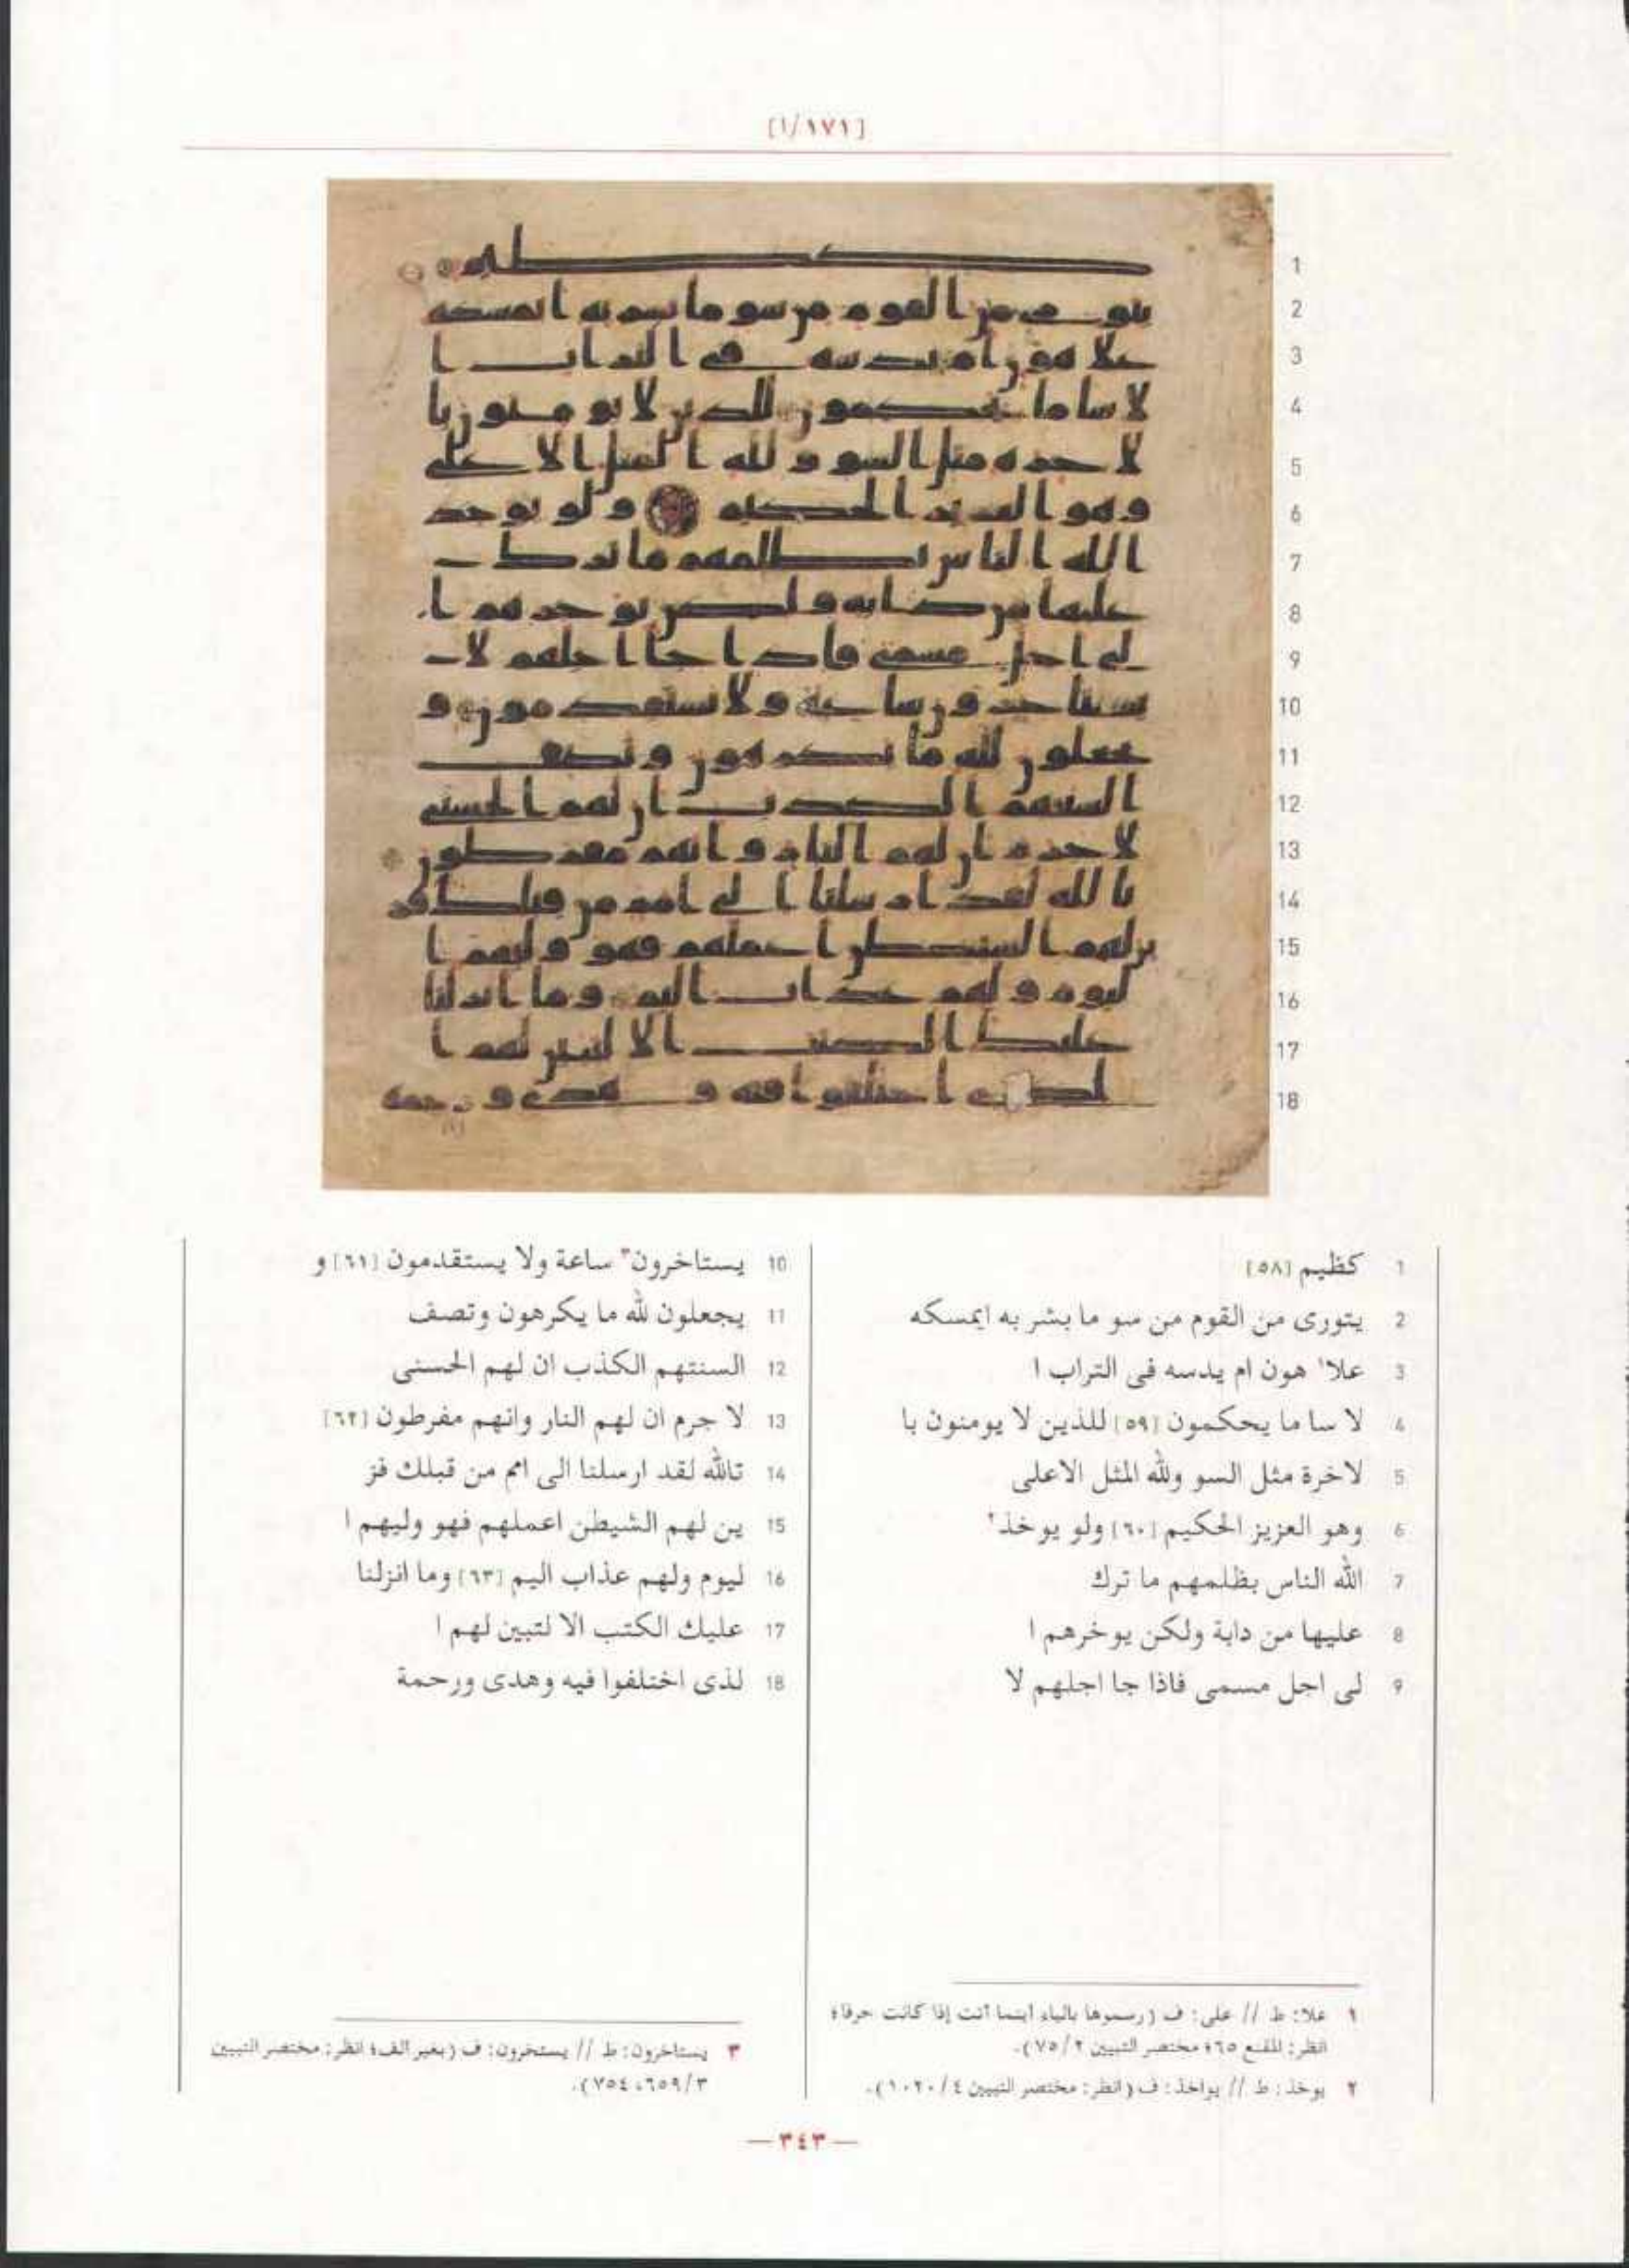 [١٧١/١]
1
2
3
4
5
6
7
8
9
10
11
12
13
14
15
16
17
18
1 كظيم [٥٨]
2 يتورى من القوم من سو ما بشر به ايمسكه
3 علا١ هون ام يدسه فى التراب ا
4 لا سا ما يحكمون [٥٩] للذين لا يومنون با
5 لاخرة مثل السو ولله المثل الاعلى
6 وهو العزيز الحكيم [٦٠] ولو يوخذ٢
7 الله الناس بظلمهم ما ترك
8 عليها من دابة ولكن يوخرهم ا
9 لى اجل مسمى فاذا جا اجلهم لا
10 يستاخرون٣ ساعة ولا يستقدمون [٦١] و
11 يجعلون لله ما يكرهون وتصف
12 السنتهم الكذب ان لهم الحسنى
13 لا جرم ان لهم النار وانهم مفرطون [٦٢]
14 تالله لقد ارسلنا الى امم من قبلك فز
15 ين لهم الشيطن اعملهم فهو وليهم ا
16 ليوم ولهم عذاب اليم [٦٣] وما انزلنا
17 عليك الكتب الا لتبين لهم ا
18 لذى اختلفوا فيه وهدى ورحمة
١ علا: ط // على: ف (رسموها بالياء أينما أتت إذا كانت حرفا؛
انظر: المقنع ٦٥؛ مختصر التبيين ٧٥/٢).
٢ يوخذ: ط // يواخذ: ف (انظر: مختصر التبيين ١٠٢٠/٤).
٣ يستاخرون: ط // يستخرون: ف (بغير الف؛ انظر: مختصر التبيين
٦٥٩/٣، ٧٥٤).
— ٣٤٣ —